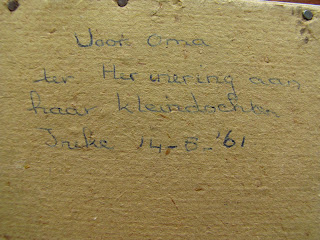 Voor Oma
ter Herinnering aan
haar kleindochter
Ineke 14-8-'61